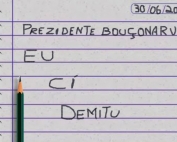 30/06/20
PREZIDENTE BOUÇONARU
EU
CÍ
DEMITU